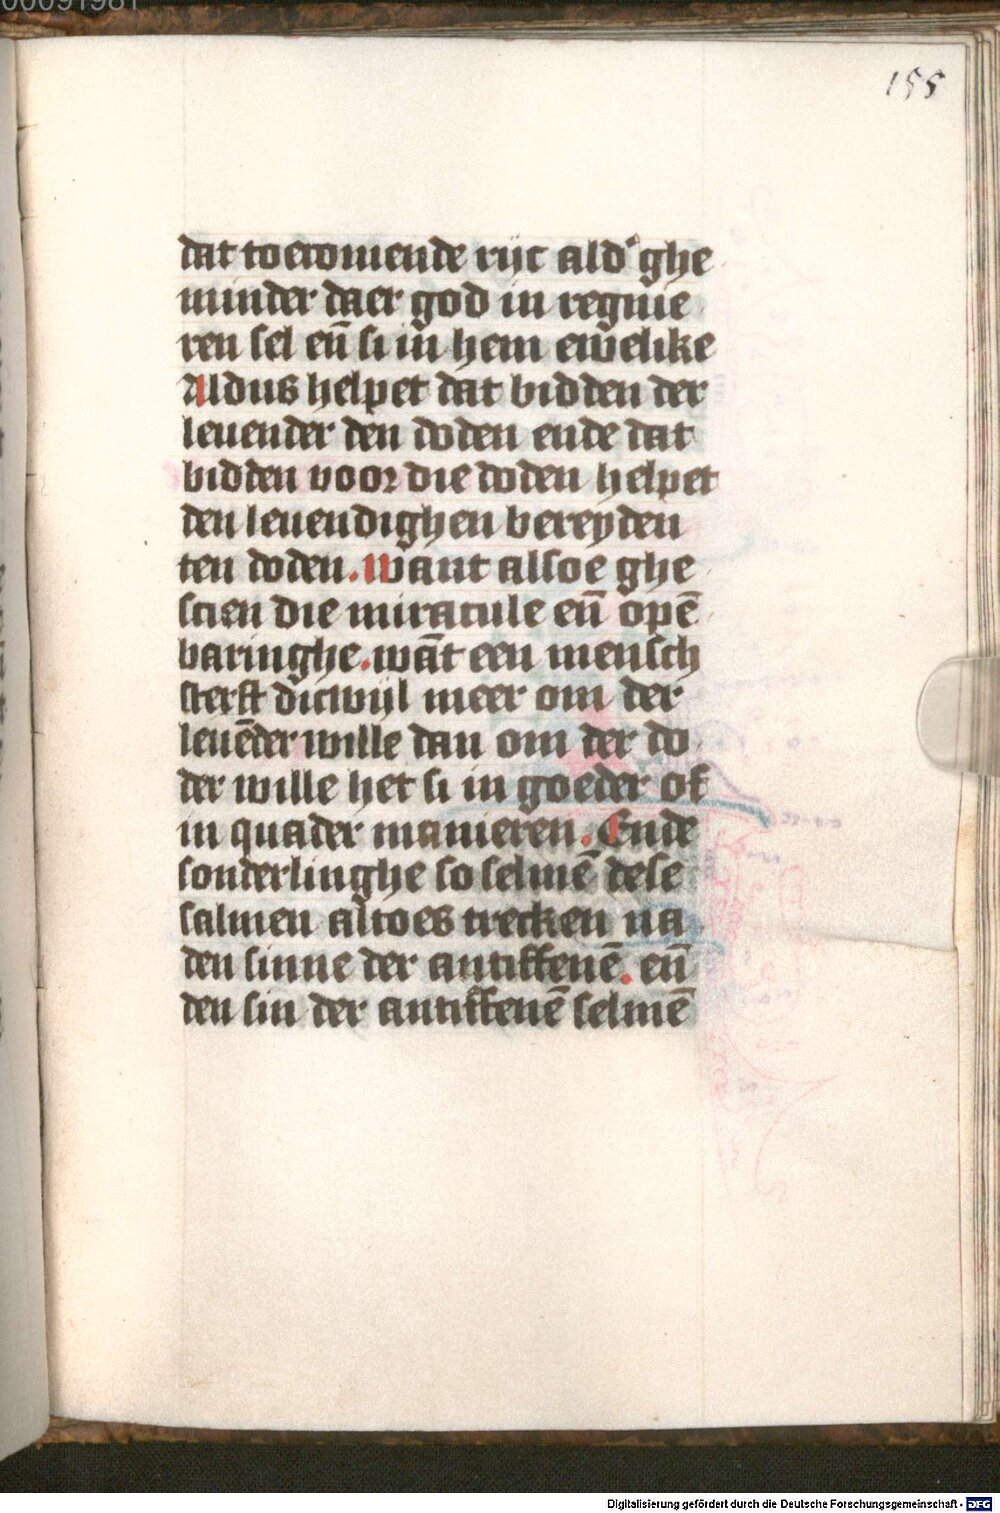 00091981
155
dat toecomende rijc ald' ghe
minder daer god in regnie
ren sel en̄ si in hem ewelike
Aldus helpet dat bidden der
leuender den doden ende dat
bidden voor die doden helpet
den leuendighen bereyden
ten doden. Want alsoe ghe
scien die miracule en̄ opē
baringhe. wāt een mensch
sterft dicwijl meer om der
leuēder wille dan om der do
der wille het si in goeder of
in quader manieren. Ende
sonderlinghe so selmē dese
salmen altoes trecken na
den sinne der antiffenē. en̄
den sin der antiffenē selmē
Digitalisierung gefördert durch die Deutsche Forschungsgemeinschaft - DFG